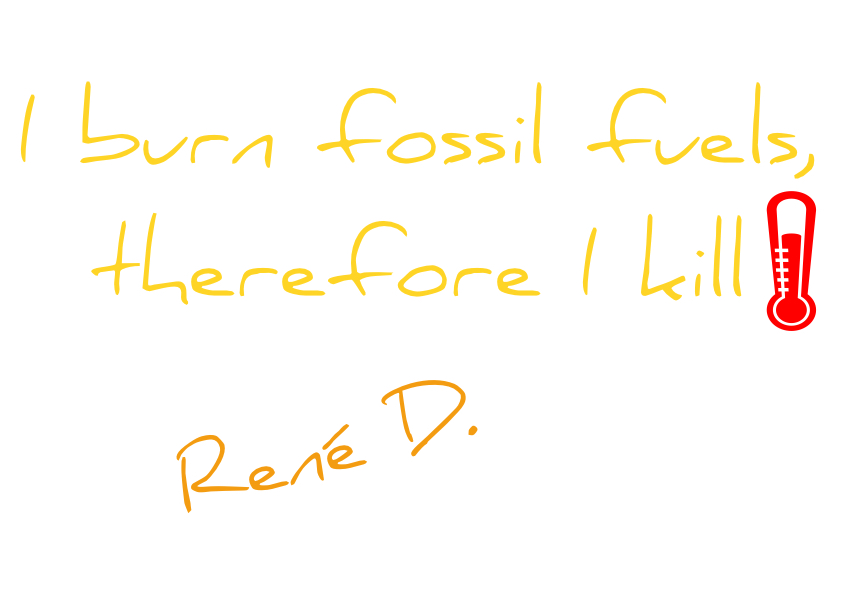 I burn fossil fuels,
therefore I kill
René D.